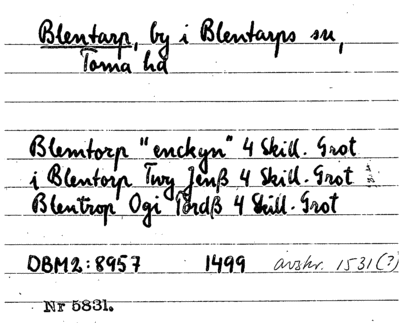 Blentarp, by i Blentarps sn,
Torna hd
Blemtorp "enckyn" 4 Skill. Grot
i Blentorp Twy Jenß 4 Skill. Grot
Blentrop Ogi Tordß 4 Skill. Grot
DBM2:8957 1499 avskr. 1531(?)
Nr 5831.